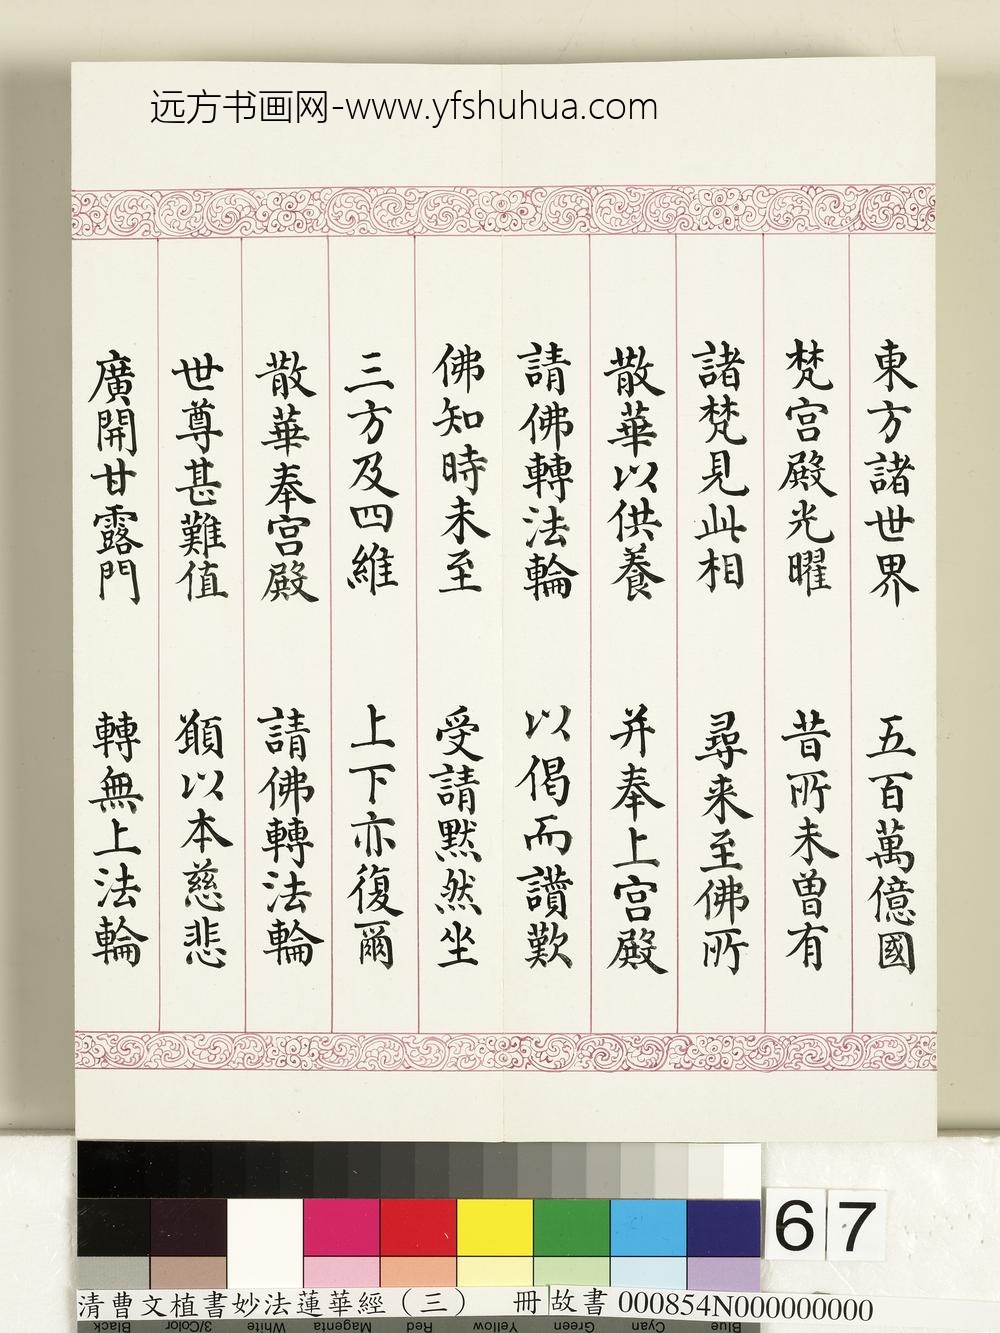 远方书画网-www.yfshuhua.com
東方諸世界 五百萬億國
梵宫殿光曜 昔所未曽有
諸梵見此相 尋来至佛所
散華以供養 并奉上宫殿
請佛轉法輪 以偈而讚歎
佛知時未至 受請黙然坐
三方及四維 上下亦復爾
散華奉宫殿 請佛轉法輪
世尊甚難值 願以本慈悲
廣開甘露門 轉無上法輪
67
清曹文植書妙法蓮華經（三） 冊 故書 000854N000000000
Black 3/Color White Magenta Red Yellow Green Cyan Blue